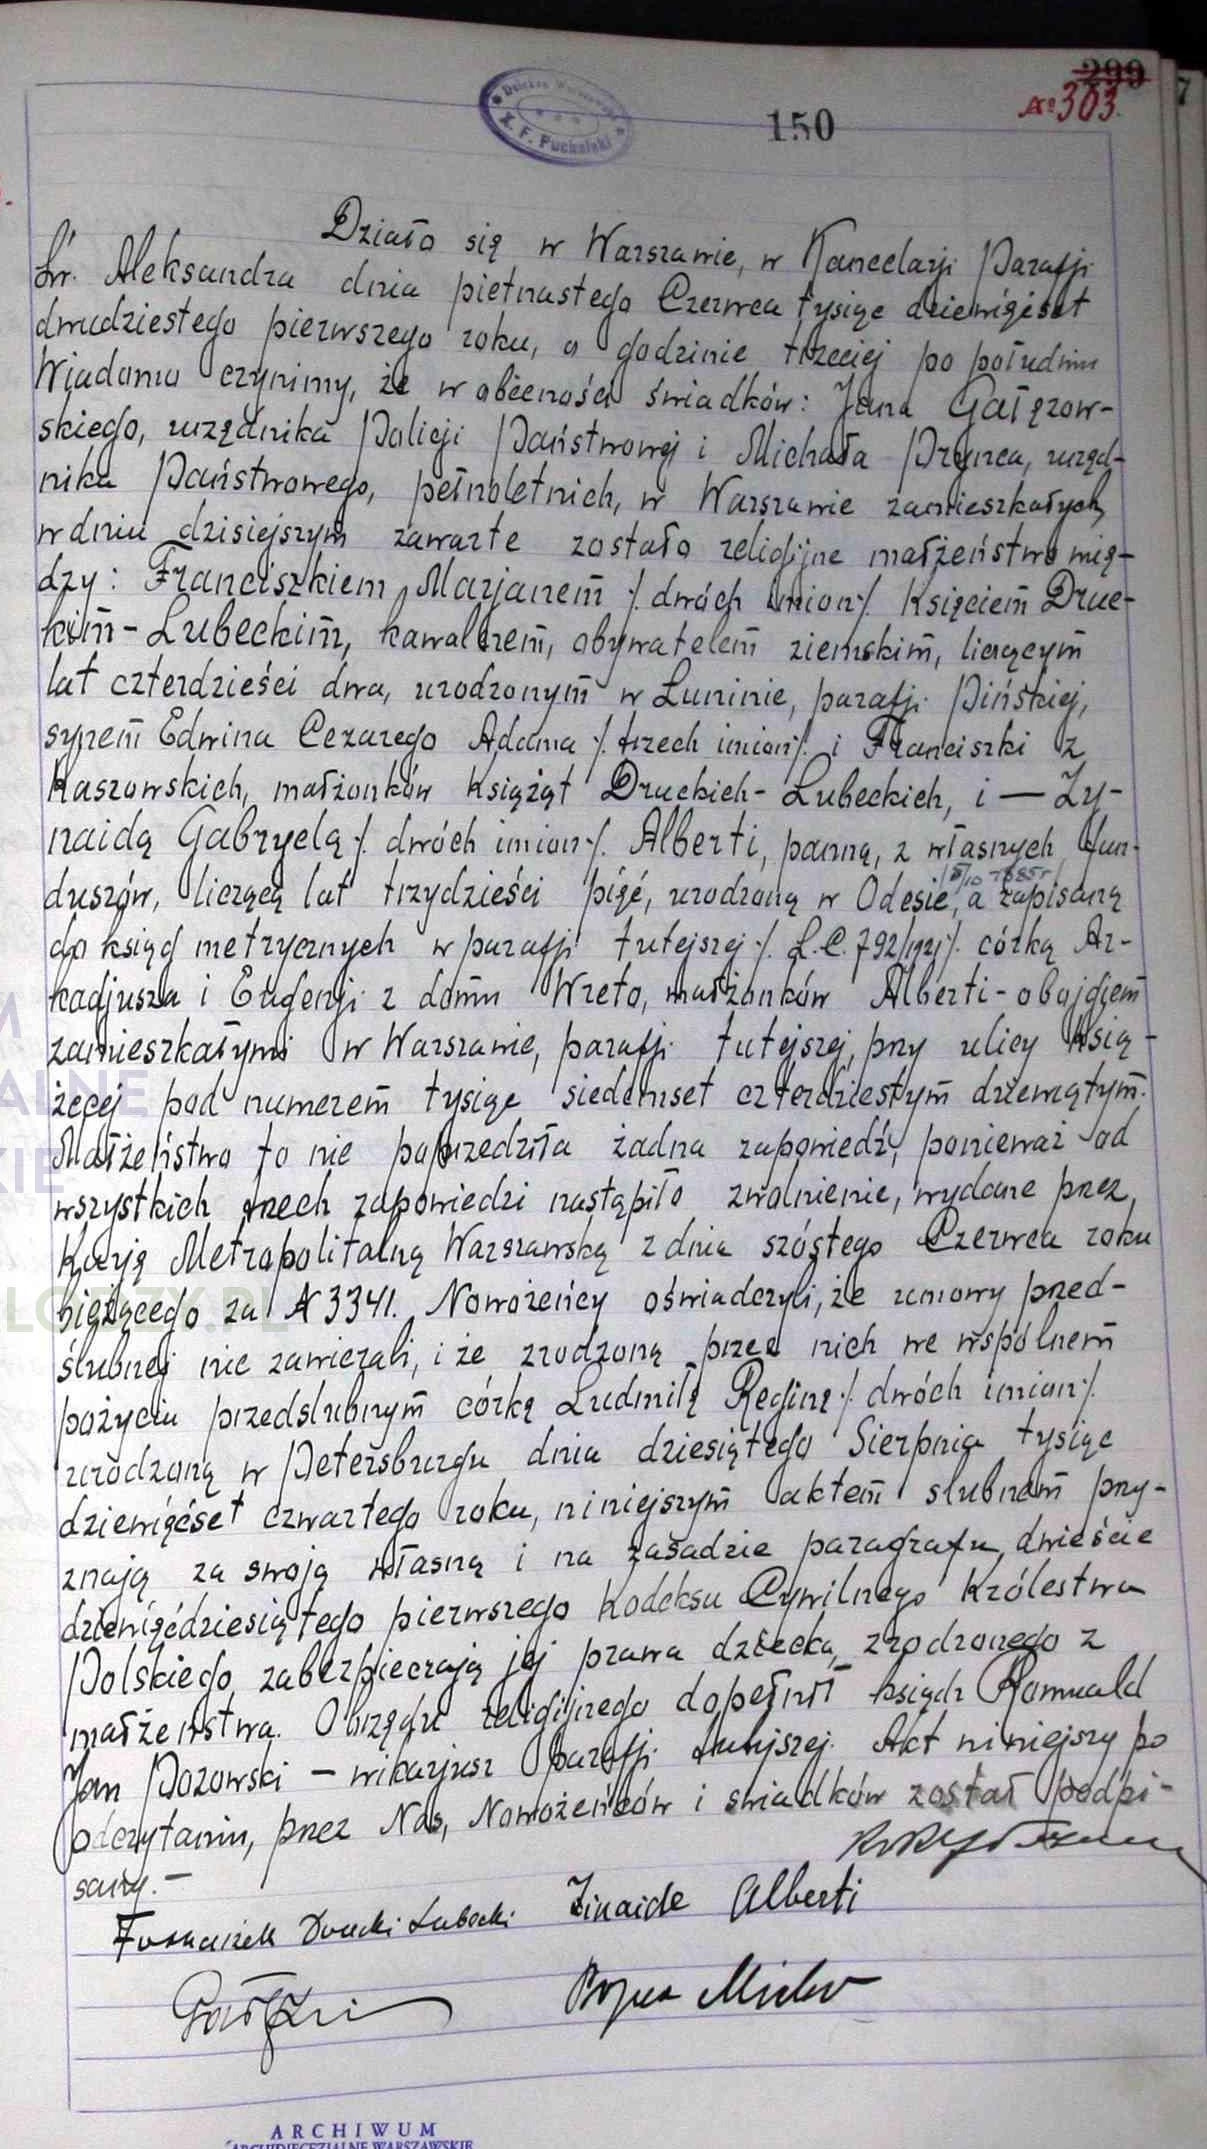 299
№ 303.
150
Dziekan Warszawski
X. F. Puchalski
Działo się w Warszawie, w Kancelarji Parafji
Św. Aleksandra dnia piętnastego Czerwca tysiąc dziewięćset
dwudziestego pierwszego roku, o godzinie trzeciej po południu
Wiadomo czynimy, że w obecności świadków: Jana Gałęzow-
skiego, urzędnika Policji Państwowej i Michała Prynca, urzęd-
nika Państwowego, pełnoletnich, w Warszawie zamieszkałych,
w dniu dzisiejszym zawarte zostało religijne małżeństwo mię-
dzy: Franciszkiem Marjanem /. dwóch imion /. Księciem Druc-
kim-Lubeckim, kawalerem, obywatelem ziemskim, liczącym
lat czterdzieści dwa, urodzonym w Łuninie, parafji Pińskiej,
synem Edwina Cezarego Adama /. trzech imion /. i Franciszki z
Kaszowskich, małżonków Książąt Druckich-Lubeckich, i — Zy-
naidą Gabryelą /. dwóch imion /. Alberti, panną, z własnych fun-
duszów, liczącą lat trzydzieści pięć, urodzoną w Odesie, a zapisaną
do ksiąg metrycznych w parafji tutejszej /. L.C. 792/1921 /. córką Ar-
kadjusza i Eugenji z domu Wreto, małżonków Alberti - obojgiem
zamieszkałymi w Warszawie, parafji tutejszej, przy ulicy Ksią-
żęcej pod numerem tysiąc siedemset czterdziestym dziewiątym.
Małżeństwo to nie poprzedziła żadna zapowiedź, ponieważ od
wszystkich trzech zapowiedzi nastąpiło zwolnienie, wydane przez
Kurję Metropolitalną Warszawską z dnia szóstego Czerwca roku
bieżącego za № 3341. Nowożeńcy oświadczyli, że umowy przed-
ślubnej nie zawierali, i że zrodzoną przez nich we wspólnem
pożyciu przedślubnym córkę Ludmiłę Reginę /. dwóch imion /.
urodzoną w Petersburgu dnia dziesiątego Sierpnia tysiąc
dziewięćset czwartego roku, niniejszym aktem ślubnem przy-
znają za swoją własną i na zasadzie paragrafu dwieście
dziewięćdziesiątego pierwszego Kodeksu Cywilnego Królestwa
Polskiego zabezpieczają jej prawa dziecka zrodzonego z
małżeństwa. Obrzędu religijnego dopełnił ksiądz Romuald
Jan Dozowski — wikarjusz parafji tutejszej. Akt niniejszy po
odczytaniu, przez Nas, Nowożeńców i świadków został podpi-
sany. —
Franciszek Drucki Lubecki Zinaide Alberti
ARCHIWUM
ARCHIDIECEZJALNE WARSZAWSKIE